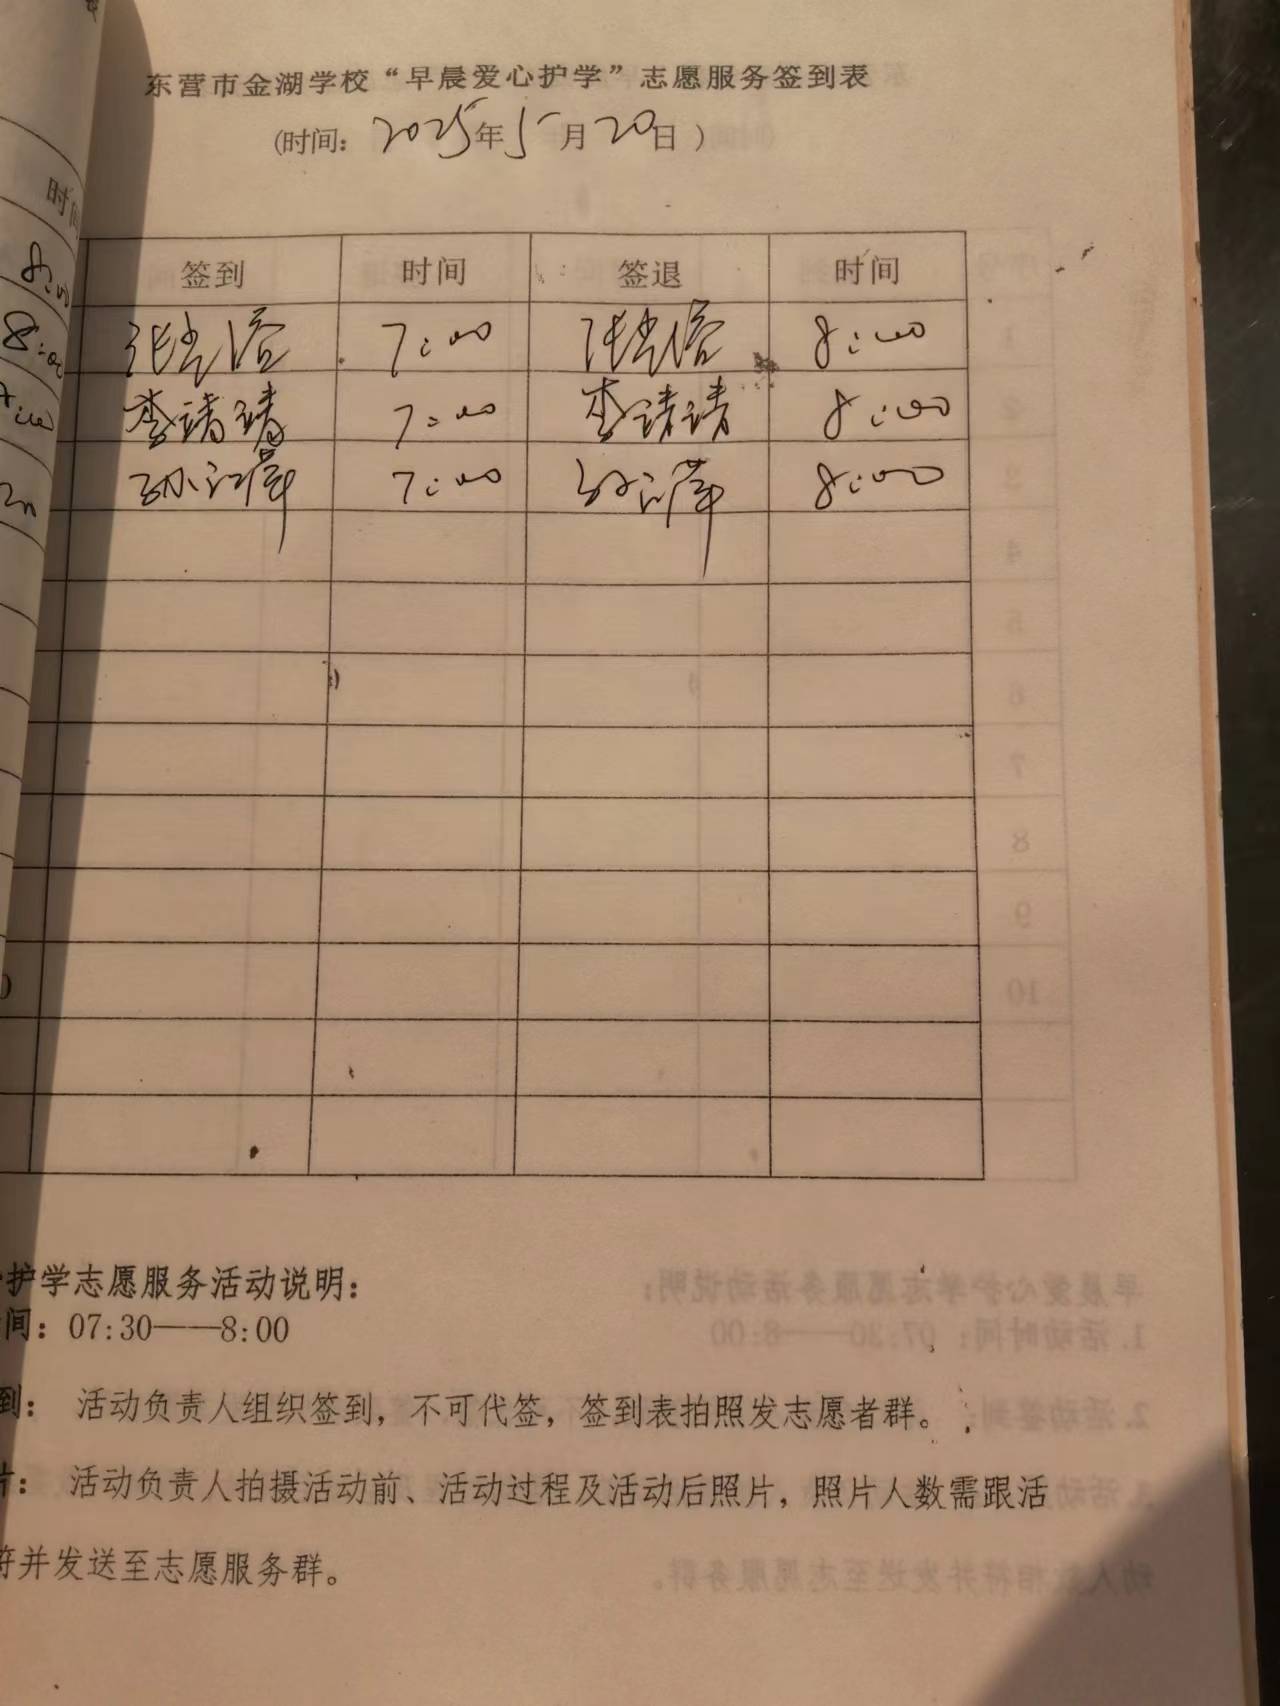 东营市金湖学校“早晨爱心护学”志愿服务签到表
(时间: 2025年5月20日)
时间
签到 时间 签退 时间
8:00
7:00 8:00
8:00
李靖靖 7:00 李靖靖 8:00
7:00 8:00
护学志愿服务活动说明:
间: 07:30——8:00
到: 活动负责人组织签到, 不可代签, 签到表拍照发志愿者群。
片: 活动负责人拍摄活动前、活动过程及活动后照片, 照片人数需跟活
符并发送至志愿服务群。